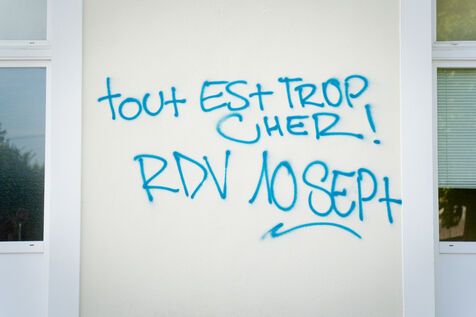 tout EST TROP
CHER !
RDV 10 SEPT